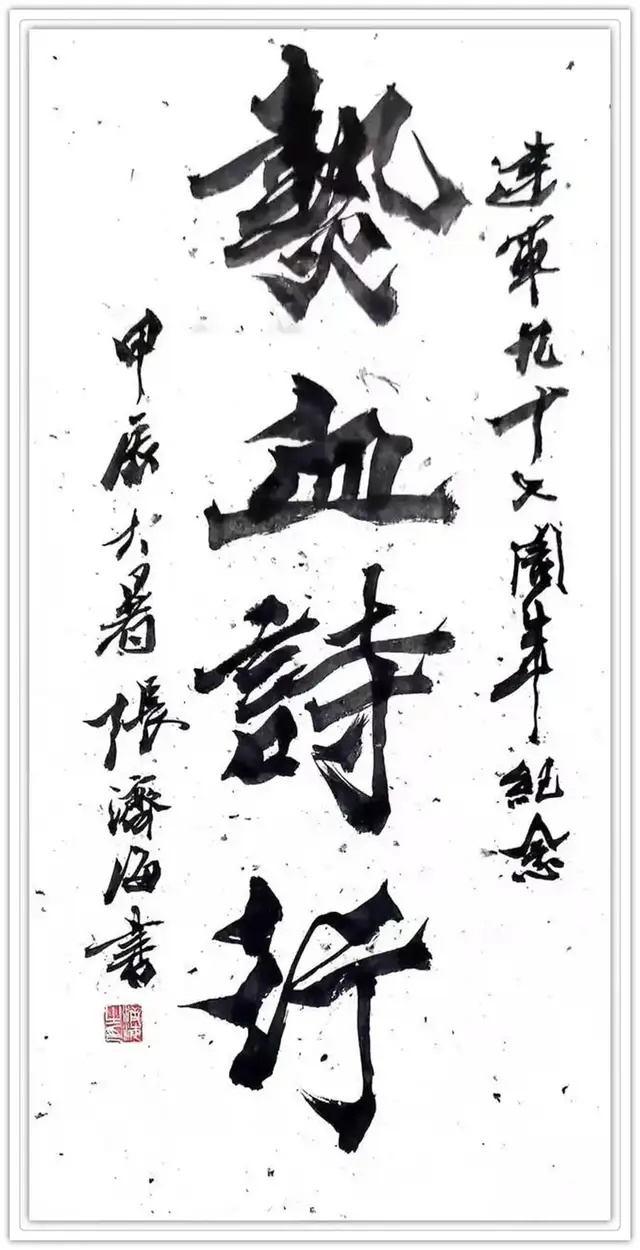 建軍九十七周年紀念
熱血詩行
甲辰大暑張濟海書